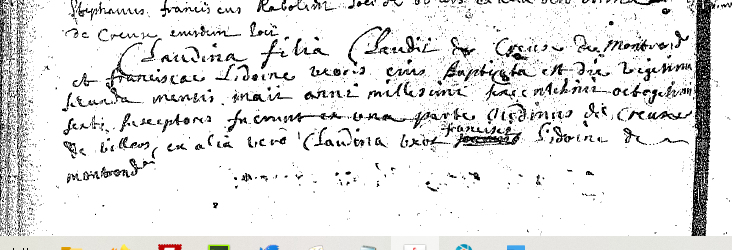 Stephanus franciscus Rabolin
de Creuse eiusdem loci
Claudina filia Claudii de Creuse de Montrond
et franciscae Lidoine uxoris eius Baptizata est die vigesima
secunda mensis maii anni millesimi sexcentesimi octogesimi
sexti susceptores fuerunt ex una parte de Creuse
de villers, ex alia vero Claudina uxor francisci Lidoine de
montrond